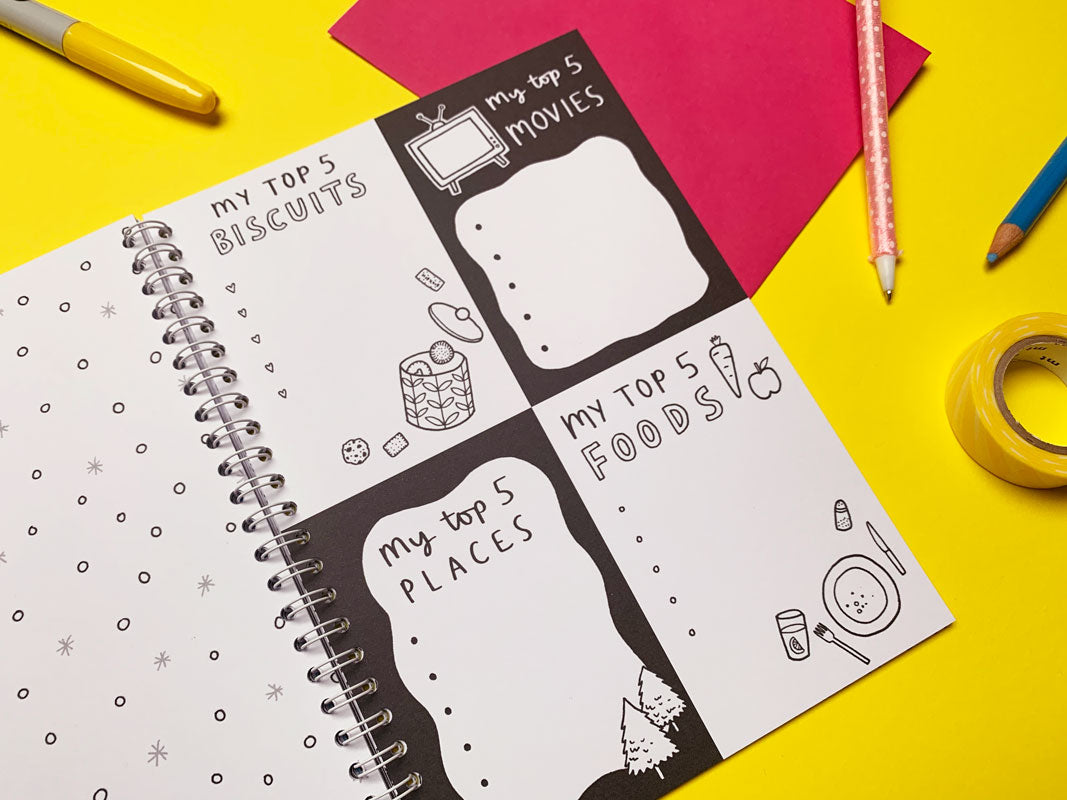 MY TOP 5
BISCUITS
my top 5
MOVIES
my top 5
PLACES
MY TOP 5
FOODS
mt